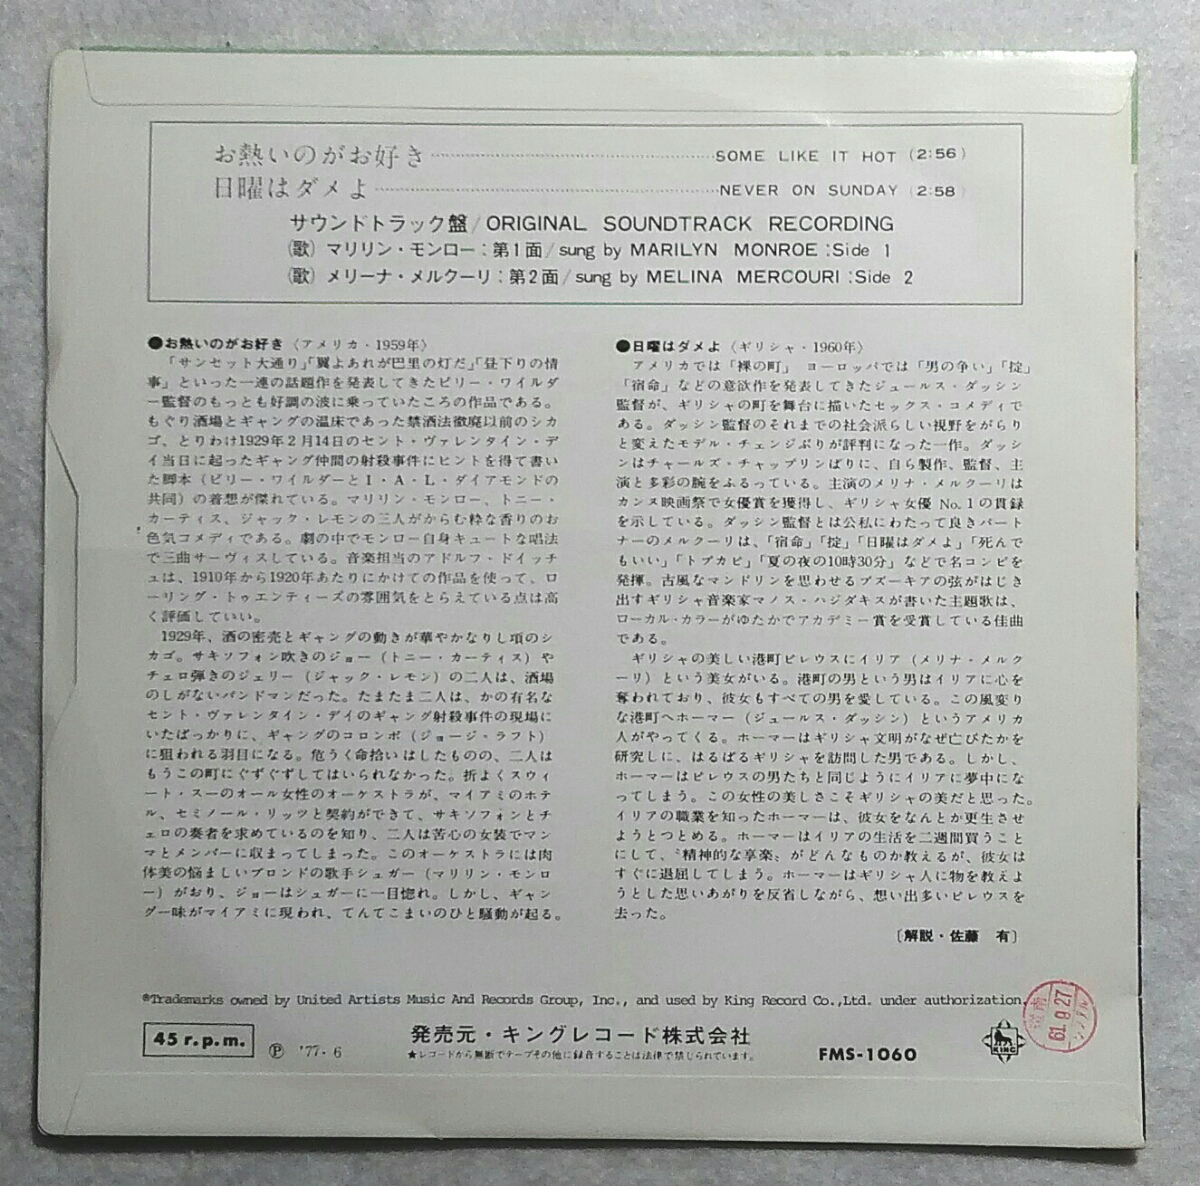 お熱いのがお好き……………………………SOME LIKE IT HOT (2:56)
日曜はダメよ…………………………………NEVER ON SUNDAY (2:58)
サウンドトラック盤/ORIGINAL SOUNDTRACK RECORDING
(歌) マリリン・モンロー:第1面/sung by MARILYN MONROE:Side 1
(歌) メリーナ・メルクーリ:第2面/sung by MELINA MERCOURI:Side 2
●お熱いのがお好き〈アメリカ・1959年〉
「サンセット大通り」「翼よあれが巴里の灯だ」「昼下りの情
事」といった一連の話題作を発表してきたビリー・ワイルダ
ー監督のもっとも好調の波に乗っていたころの作品である。
もぐり酒場とギャングの温床であった禁酒法徹廃以前のシカ
ゴ、とりわけ1929年2月14日のセント・ヴァレンタイン・デ
イ当日に起ったギャング仲間の射殺事件にヒントを得て書い
た脚本(ビリー・ワイルダーとI・A・L・ダイアモンドの
共同)の着想が傑れている。マリリン・モンロー、トニー・
カーティス、ジャック・レモンの三人がからむ粋な香りのお
色気コメディである。劇の中でモンロー自身キュートな唱法
で三曲サーヴィスしている。音楽担当のアドルフ・ドイッチ
ュは、1910年から1920年あたりにかけての作品を使って、ロ
ーリング・トゥエンティーズの雰囲気をとらえている点は高
く評価していい。
1929年、酒の密売とギャングの動きが華やかなりし頃のシ
カゴ。サキソフォン吹きのジョー(トニー・カーティス)や
チェロ弾きのジェリー(ジャック・レモン)の二人は、酒場
のしがないバンドマンだった。たまたま二人は、かの有名な
セント・ヴァレンタイン・デイのギャング射殺事件の現場に
いたばっかりに、ギャングのコロンボ(ジョージ・ラフト)
に狙われる羽目になる。危うく命拾いはしたものの、二人は
もうこの町にぐずぐずしてはいられなかった。折よくスウィ
ート・スーのオール女性のオーケストラが、マイアミのホテ
ル、セミノール・リッツと契約ができて、サキソフォンとチ
ェロの奏者を求めているのを知り、二人は苦心の女装でマン
マとメンバーに収まってしまった。このオーケストラには肉
体美の悩ましいブロンドの歌手シュガー(マリリン・モンロ
ー)がおり、ジョーはシュガーに一目惚れ。しかし、ギャン
グ一味がマイアミに現われ、てんてこまいのひと騒動が起る。
●日曜はダメよ〈ギリシャ・1960年〉
アメリカでは「裸の町」 ヨーロッパでは「男の争い」「掟」
「宿命」などの意欲作を発表してきたジュールス・ダッシン
監督が、ギリシャの町を舞台に描いたセックス・コメディで
ある。ダッシン監督のそれまでの社会派らしい視野をがらり
と変えたモデル・チェンジぶりが評判になった一作。ダッシ
ンはチャールズ・チャップリンばりに、自ら製作、監督、主
演と多彩の腕をふるっている。主演のメリナ・メルクーリは
カンヌ映画祭で女優賞を獲得し、ギリシャ女優No.1の貫録
を示している。ダッシン監督とは公私にわたって良きパート
ナーのメルクーリは、「宿命」「掟」「日曜はダメよ」「死んで
もいい」「トプカピ」「夏の夜の10時30分」などで名コンビを
発揮。古風なマンドリンを思わせるブズーキアの弦がはじき
出すギリシャ音楽家マノス・ハジダキスが書いた主題歌は、
ローカル・カラーがゆたかでアカデミー賞を受賞している佳曲
である。
ギリシャの美しい港町ピレウスにイリア(メリナ・メルク
ーリ)という美女がいる。港町の男という男はイリアに心を
奪われており、彼女もすべての男を愛している。この風変り
な港町へホーマー(ジュールス・ダッシン)というアメリカ
人がやってくる。ホーマーはギリシャ文明がなぜ亡びたかを
研究しに、はるばるギリシャを訪問した男である。しかし、
ホーマーはピレウスの男たちと同じようにイリアに夢中にな
ってしまう。この女性の美しさこそギリシャの美だと思った。
イリアの職業を知ったホーマーは、彼女をなんとか更生させ
ようとつとめる。ホーマーはイリアの生活を二週間買うこと
にして、〝精神的な享楽〟がどんなものか教えるが、彼女は
すぐに退屈してしまう。ホーマーはギリシャ人に物を教えよ
うとした思いあがりを反省しながら、想い出多いピレウスを
去った。
〔解説・佐藤 有〕
®Trademarks owned by United Artists Music And Records Group, Inc., and used by King Record Co.,Ltd. under authorization.
45 r.p.m.
Ⓟ '77・6
発売元・キングレコード株式会社
★レコードから無断でテープその他に録音することは法律で禁じられています。
FMS-1060
KING
61.9.27